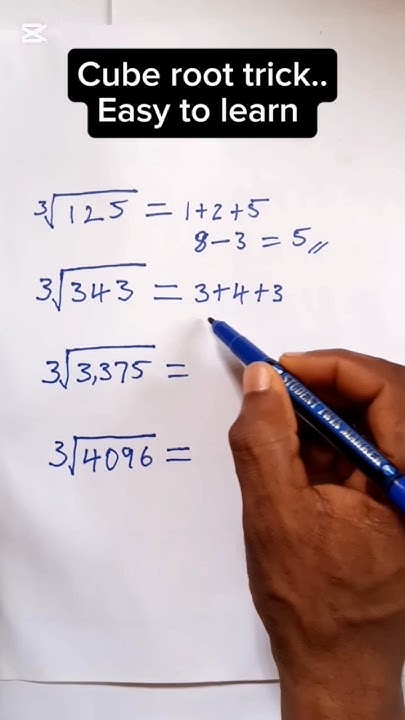 Cube root trick..
Easy to learn
³√125 = 1+2+5
8-3 = 5 //
³√343 = 3+4+3
³√3,375 =
³√4096 =
STUDENT TWIN MARKER